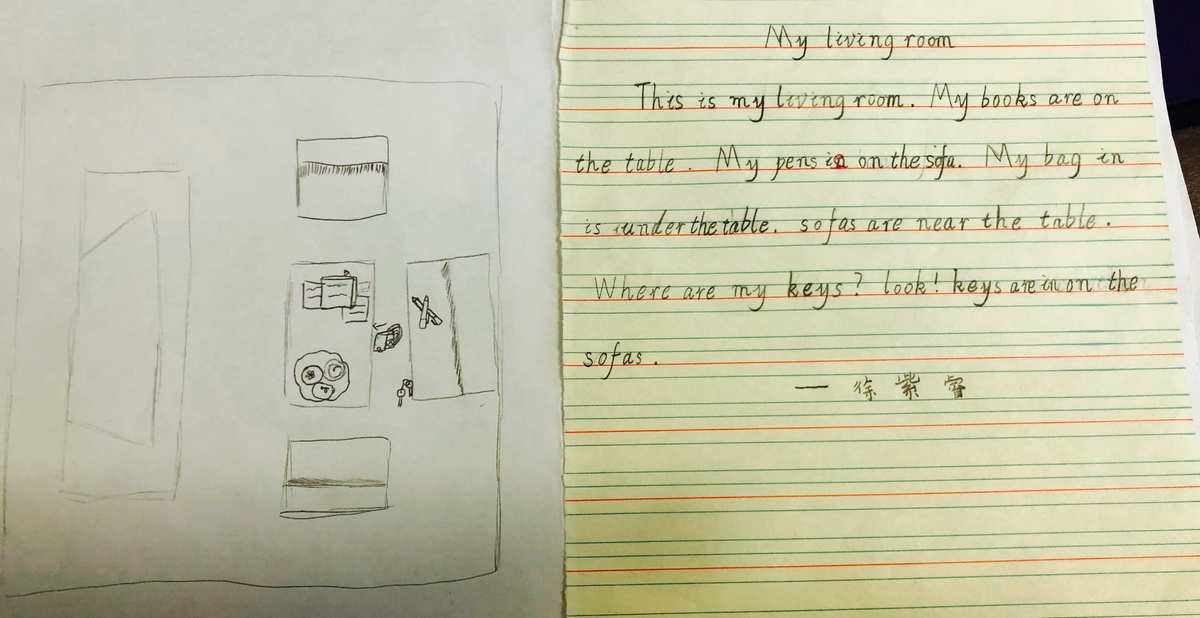 My living room
This is my living room. My books are on
the table. My pens in on the sofa. My bag in
is under the table. sofas are near the table.
Where are my keys? look! keys are in on the
sofas.
— 徐紫睿